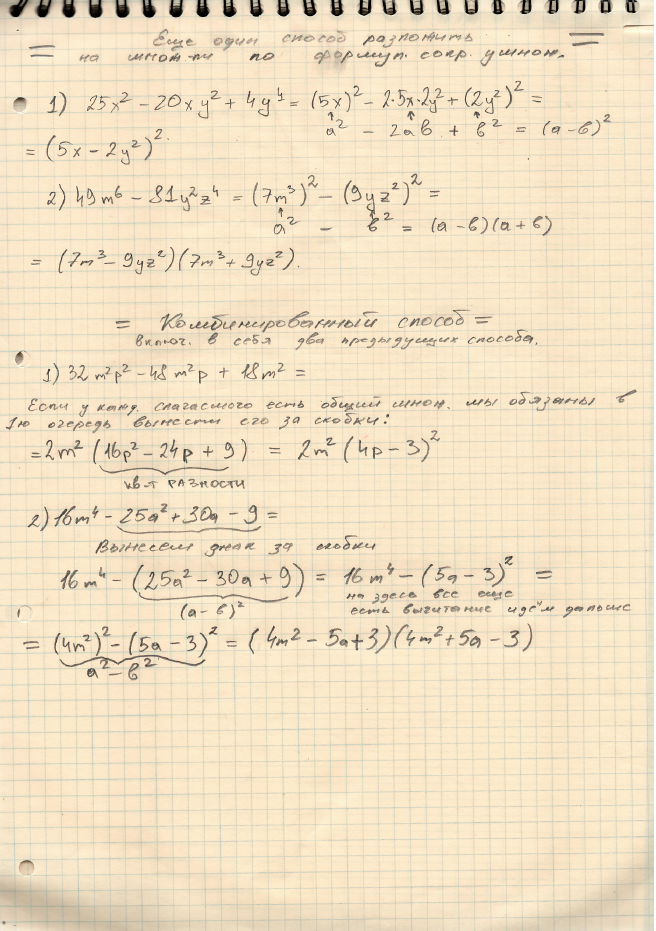 Еще один способ разложить
на множ-ли по формул. сокр. умнож.
1) 25x² - 20xy² + 4y⁴ = (5x)² - 2·5x·2y² + (2y²)² =
a² - 2ab + b² = (a-b)²
= (5x - 2y²)².
2) 49m⁶ - 81y²z⁴ = (7m³)² - (9yz²)² =
a² - b² = (a-b)(a+b)
= (7m³ - 9yz²)(7m³ + 9yz²).
= Комбинированный способ =
включ. в себя два предыдущих способа.
1) 32m²p² - 48m²p + 18m² =
Если у кажд. слагаемого есть общий множ. мы обязаны в
1ю очередь вынести его за скобки:
= 2m² (16p² - 24p + 9) = 2m² (4p - 3)²
кв-т РАЗНОСТИ
2) 16m⁴ - 25a² + 30a - 9 =
Вынесем знак за скобки
16m⁴ - (25a² - 30a + 9) = 16m⁴ - (5a - 3)² =
(a-b)²
на здесь все еще
есть вычитание идём дальше
= (4m²)² - (5a - 3)² = (4m² - 5a + 3)(4m² + 5a - 3)
a² - b²